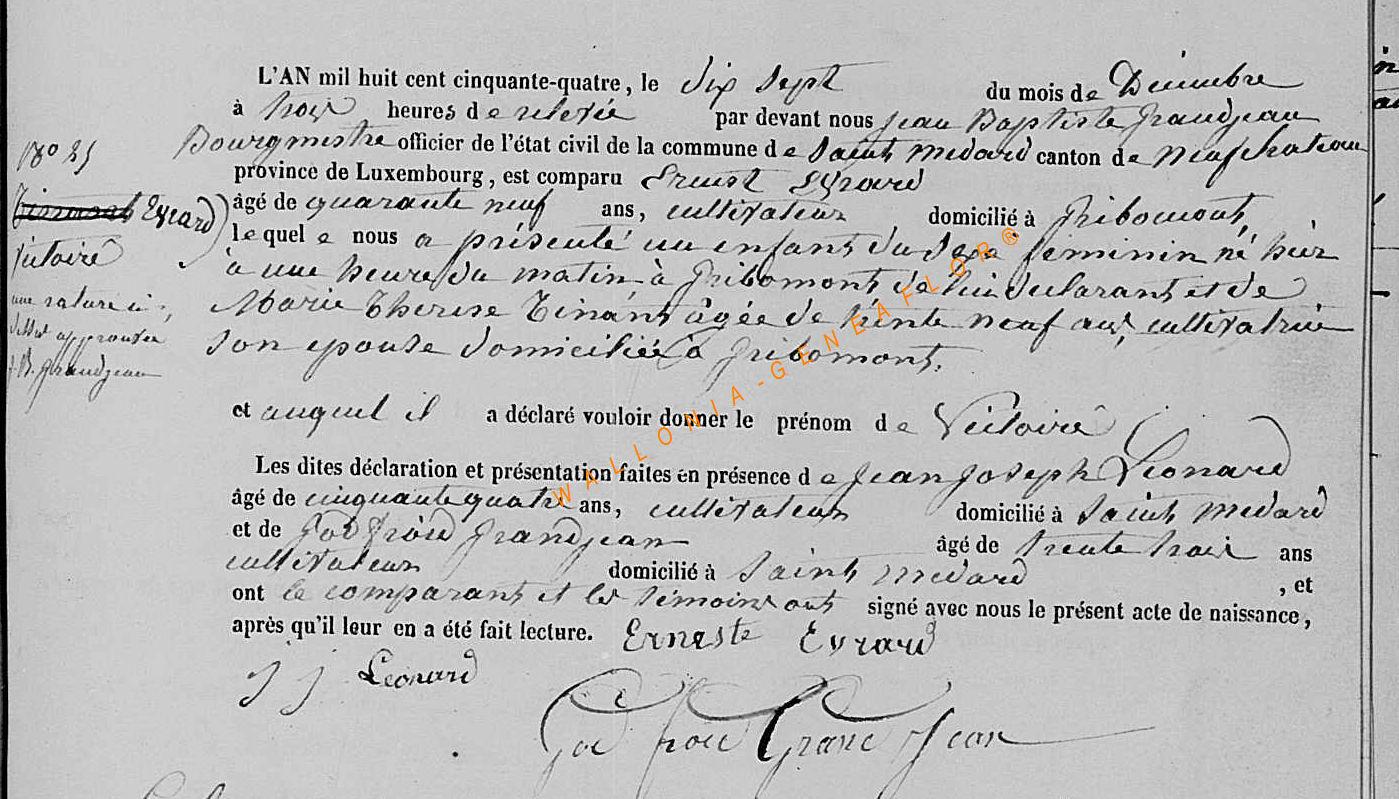 L'AN mil huit cent cinquante-quatre, le dix sept du mois de Décembre
à trois heures de relevée par devant nous Jean Baptiste Grandjean
Bourgmestre officier de l'état civil de la commune de Saint Medard canton de Neufchateau
province de Luxembourg, est comparu Ernest Evrard
âgé de quarante neuf ans, cultivateur domicilié à Gribomont,
lequel e nous a présenté un enfant du sexe feminin né hier
à une heure du matin à Gribomont de lui déclarant et de
Marie Therese Tinant âgée de trente neuf ans, cultivatrice
son epouse domiciliée à Gribomont.
et auquel il a déclaré vouloir donner le prénom de Victoire
Les dites déclaration et présentation faites en présence de Jean Joseph Léonard
âgé de cinquante quatre ans, cultivateur domicilié à Saint Medard
et de Godfroid Grandjean âgé de trente trois ans
cultivateur domicilié à Saint Medard, et
ont le comparant et les témoins ont signé avec nous le présent acte de naissance,
après qu'il leur en a été fait lecture. Erneste Evrard
j j Léonard
Godfroid Grand Jean
No 25
Evrard
Victoire
une rature ci
dessus approuvée
J.B. Grandjean
WALLONIA-GENEAFLOR®